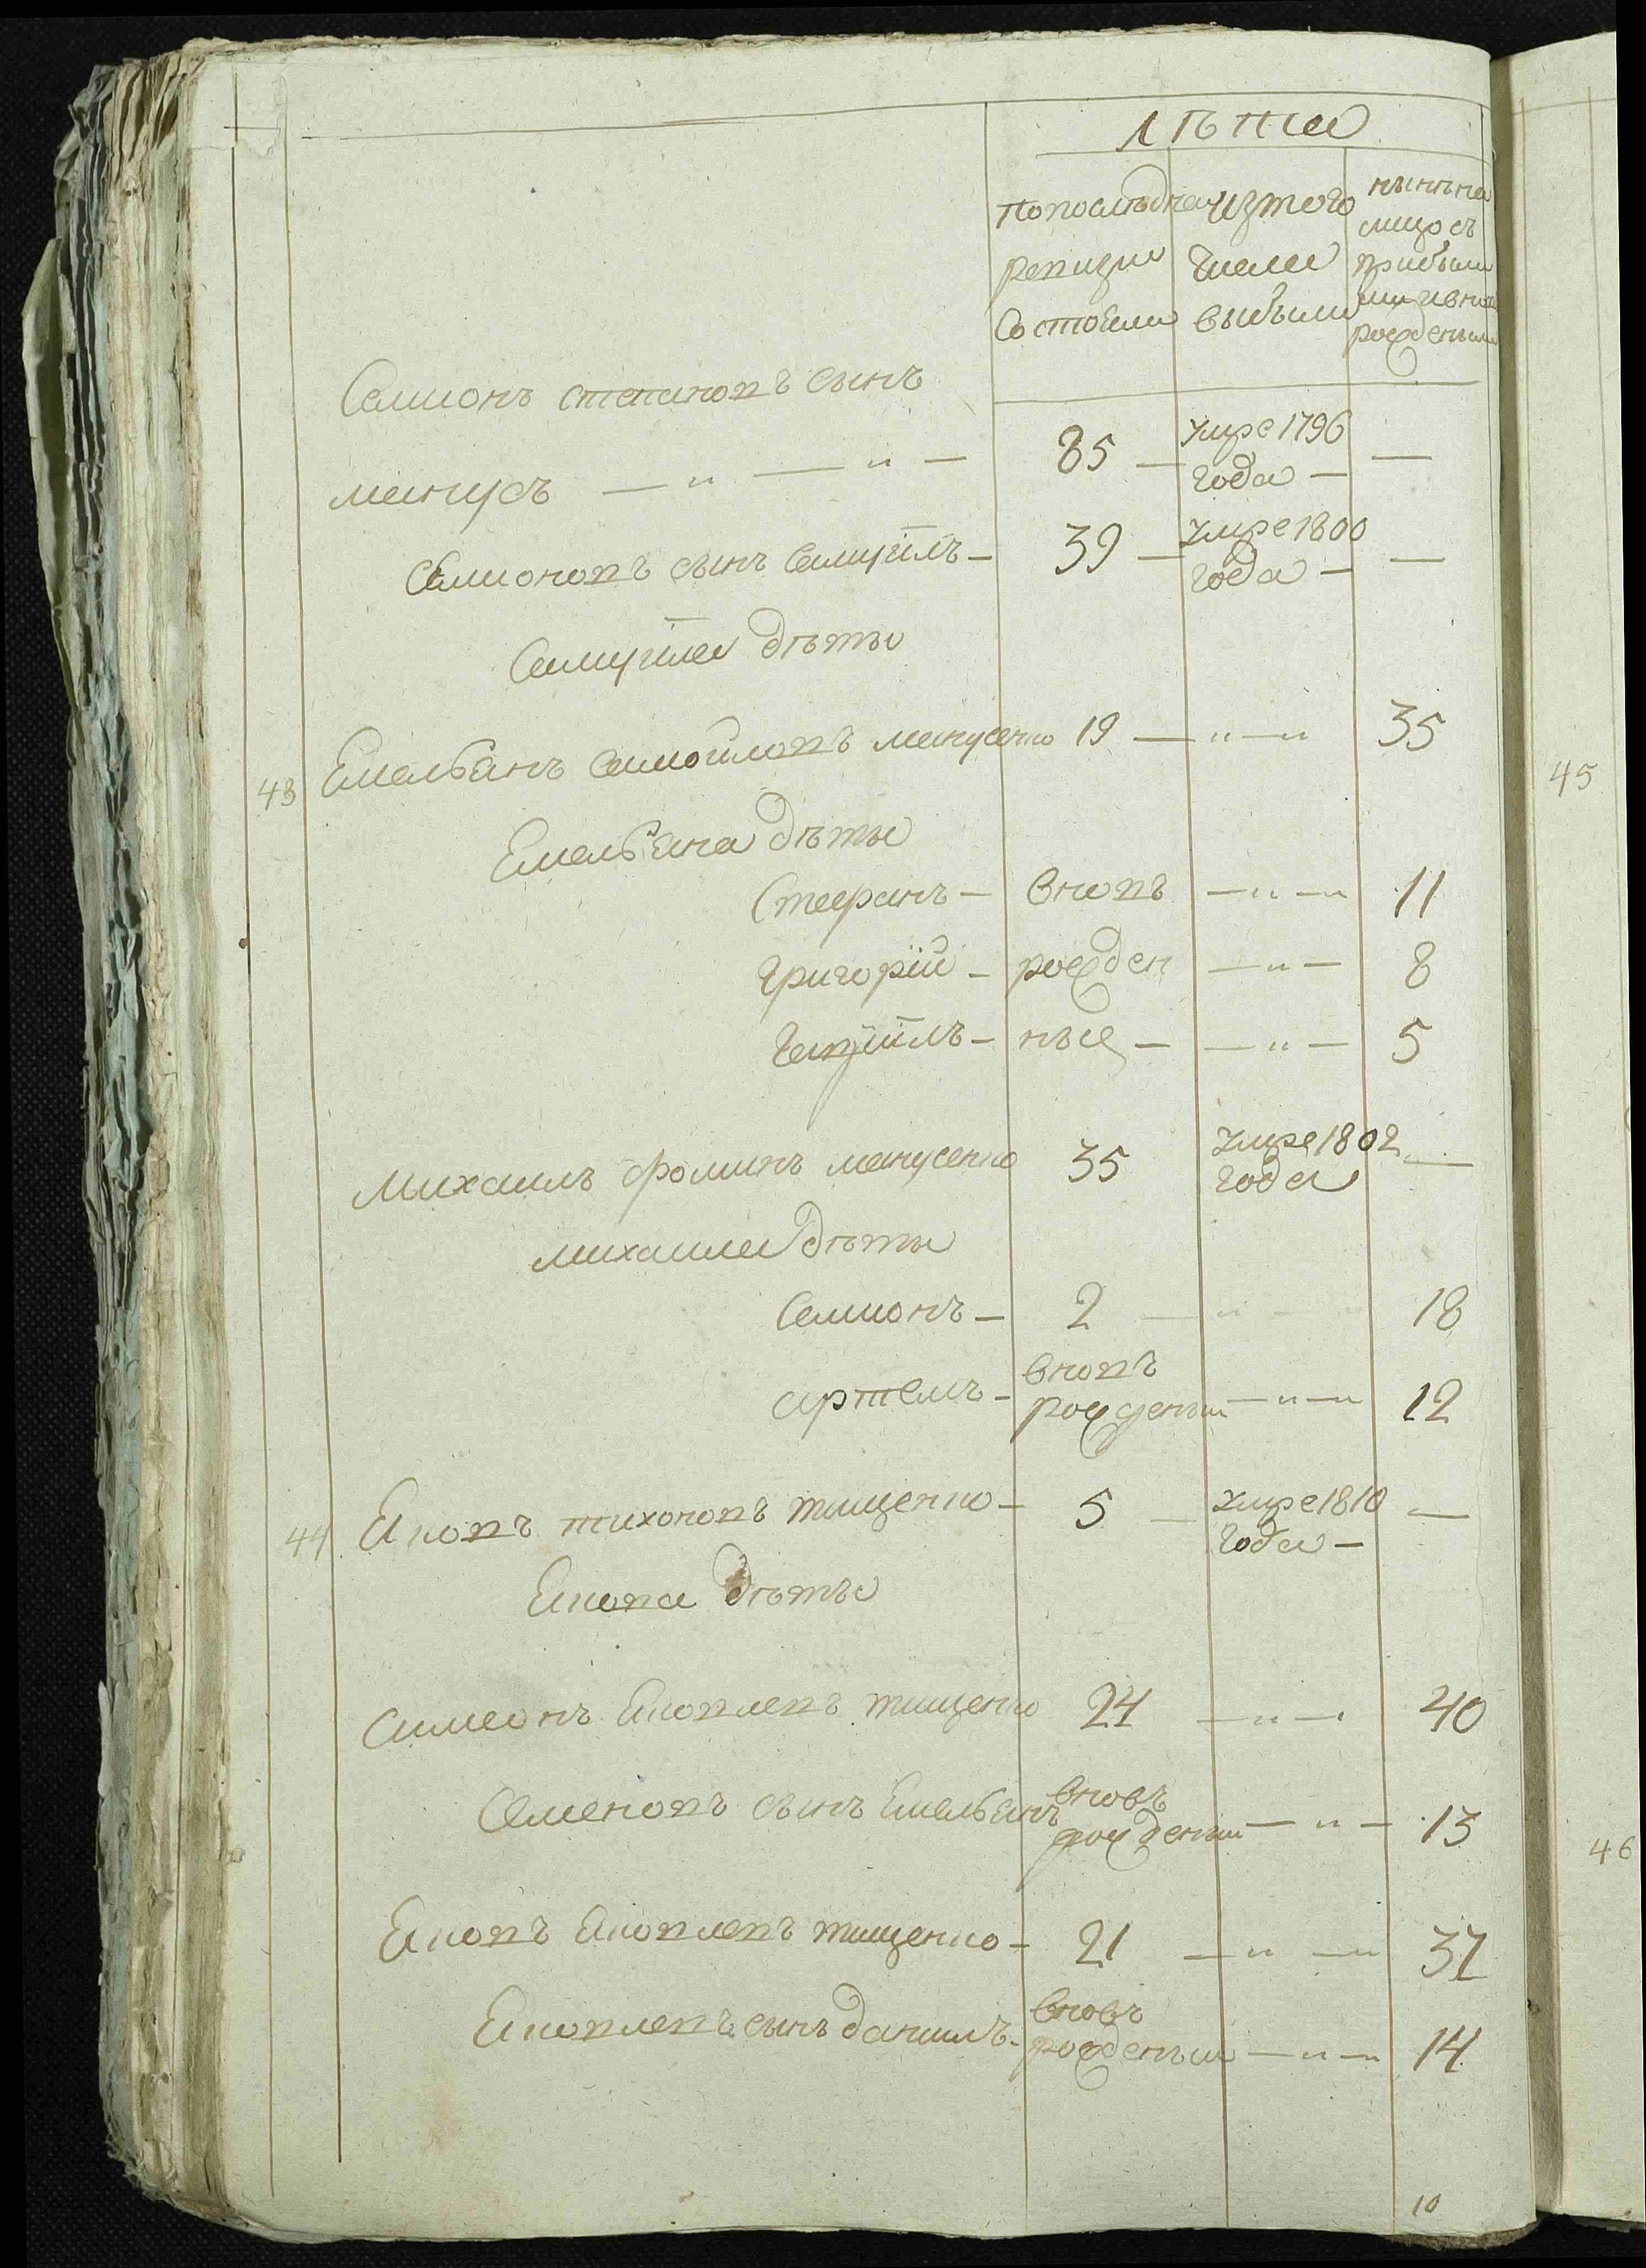 лѣта
по последнеи ревизии состояли
изтого числа выбыли
нынѣ на лицо съ прибыли ми ивно рожденыи
Семионъ степановъ сынъ
манусъ — „ — „ — 85 — умре 1796 года — —
Семионовъ сынъ Самуйлъ — 39 — умре 1800 года — —
Самуйла дѣты
43 Емельянъ самойловъ манусенко 19 — „ — „ 35
Емельяна дѣты
Стефанъ — вновъ — „ — „ 11
Григорій — рожден — „ — 8
Гаврйилъ — ные — — „ — 5
Михаилъ фоминъ манусенко 35 умре 1802 года —
михаила дѣты
Семионъ — 2 — „ — 18
артемъ — вновъ рожденыи — „ — „ 12
44 Яковъ тихоновъ тищенко — 5 — умре 1810 года — —
Якова дѣты
Симеонъ Яковлевъ тищенко 24 — „ — 40
Семеновъ сынъ Емельянъ вновъ рожденыи — „ — 13
Яковъ Яковлевъ тищенко — 21 — „ — „ 37
Яковлевъ сынъ данилъ — вновъ рожденыи — „ — „ 14
10
45
46